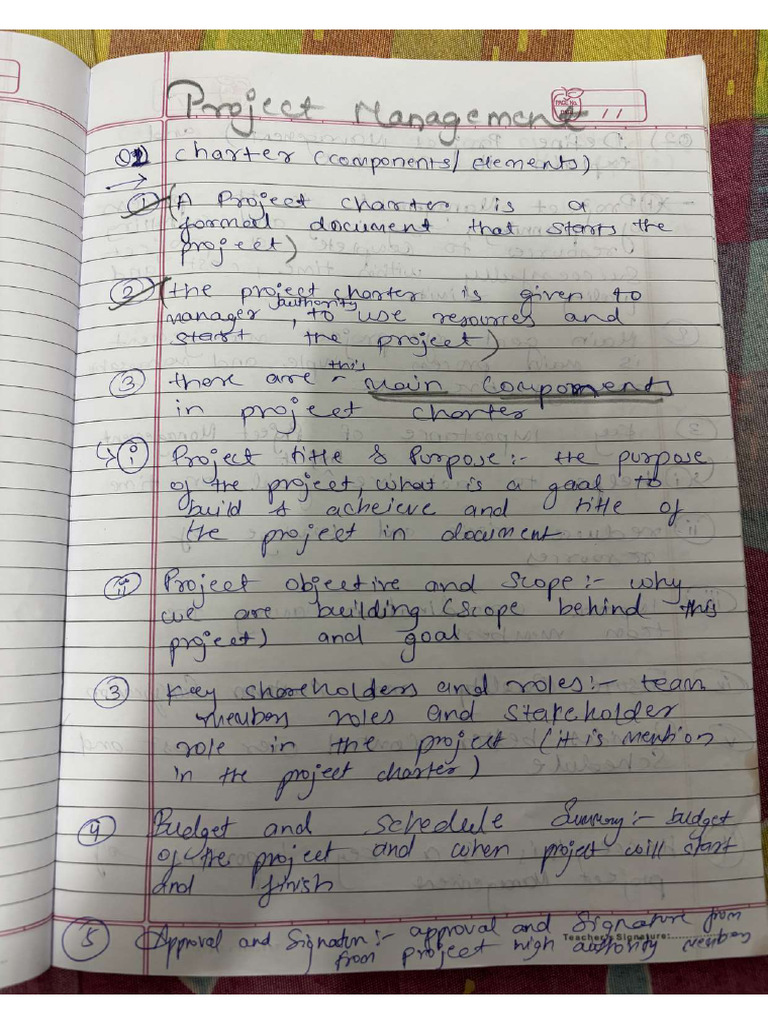 Project Management
PAGE No.
DATE / /
Q1) charter (components/elements)
→
① (A Project charter is a
formal document that starts the
project)
② (the project charter is given to
authority
manager, to use resources and
start the project)
this
③ there are Main Components
in project charter
↳ (i) Project title & Purpose:- the purpose
of the project, what is a goal to
build & acheieve and title of
the project in document
(ii) Project objective and scope:- why
we are building (scope behind this
project) and goal
③ Key shareholders and roles:- team
members roles and stakeholder
role in the project (it is mention
in the project charter)
④ Budget and schedule Summary:- budget
of the project and when project will start
and finish
⑤ Approval and Signature:- approval and Signature from
Teacher's Signature:
from project high authority